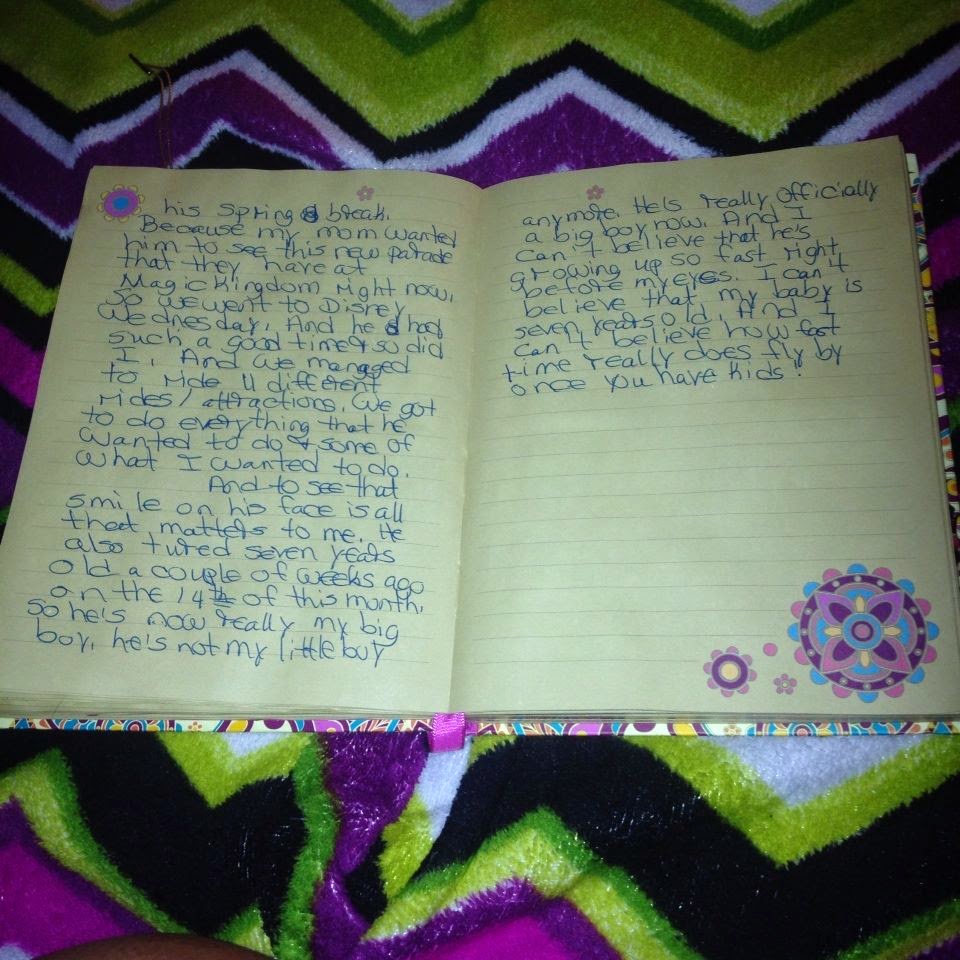 his Spring break.
Because my mom wanted
him to see this new parade
that they have at
Magic Kingdom right now.
So we went to Disney
Wednesday. And he had
such a good time & so did
I. And we managed
to ride 11 different
rides/attractions. We got
to do everything that he
wanted to do & some of
what I wanted to do.
And to see that
smile on his face is all
that matters to me. He
also tured seven years
old a couple of weeks ago
on the 14th of this month.
So he's now really my big
boy, he's not my little boy
anymore. He's really officially
a big boy now. And I
can't believe that he's
growing up so fast right
before my eyes. I can't
believe that my baby is
seven years old. And I
can't believe how fast
time really does fly by
once you have kids!